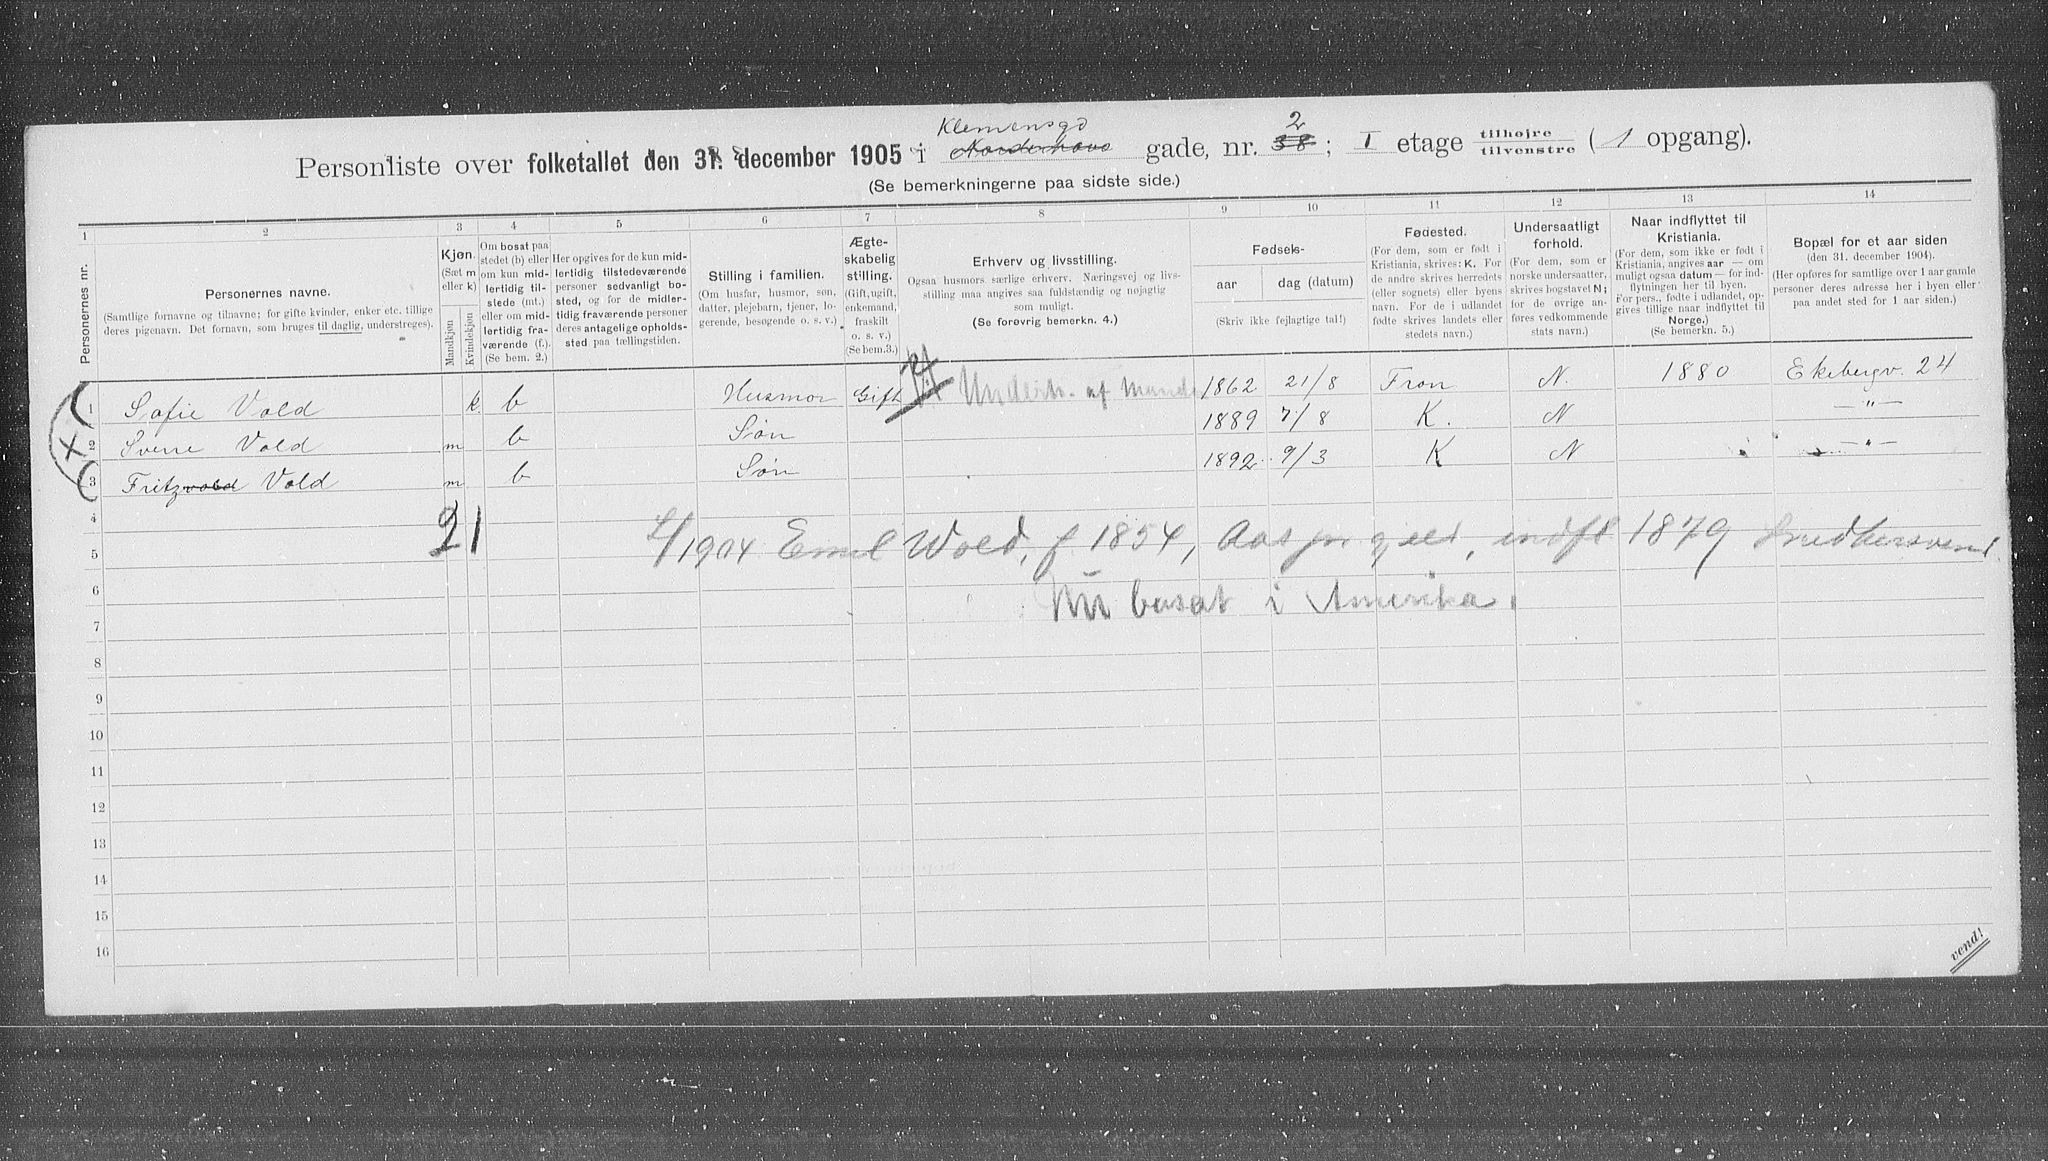 Personliste over folketallet den 31. december 1905 i Klemensgd Norderhovs gade, nr. 2 38; I etage tilhøjre tilvenstre (1 opgang).
(Se bemerkningerne paa sidste side.)
1 2 3 4 5 6 7 8 9 10 11 12 13 14
Personernes nr.
Personernes navne.
(Samtlige fornavne og tilnavne; for gifte kvinder, enker etc. tillige deres pigenavn. Det fornavn, som bruges til daglig, understreges).
Kjøn.
(Sæt m eller k)
Mandkjøn
Kvindekjøn
Om bosat paa stedet (b) eller om kun midlertidig tilstede (mt.) eller om midlertidig fraværende (f.). (Se bem. 2.)
Her opgives for de kun midlertidig tilstedeværende personer sedvanligt bosted, og for de midlertidig fraværende personer deres antagelige opholdssted paa tællingstiden.
Stilling i familien.
(Om husfar, husmor, søn, datter, plejebarn, tjener, logerende, besøgende o. s. v.)
Ægteskabelig stilling.
(Gift, ugift, enkemand, fraskilt o. s. v.)
(Se bem.3.)
Erhverv og livsstilling.
Ogsaa husmors særlige erhverv. Næringsvej og livsstilling maa angives saa fuldstændig og nøjagtig som muligt.
(Se forøvrig bemerkn. 4.)
Fødsels-
aar
dag (datum)
(Skriv ikke fejlagtige tal!)
Fødested.
(For dem, som er født i Kristiania, skrives: K. For de andre skrives herredets (eller sognets) eller byens navn. For de i udlandet fødte skrives landets eller stedets navn.)
Undersaatligt forhold.
(For dem, som er norske undersaatter, skrives bogstavet N; for de øvrige anføres vedkommende stats navn.)
Naar indflyttet til Kristiania.
(For dem, som ikke er født i Kristiania, angives aar — om muligt ogsaa datum — for indflytningen her til byen. For pers., fødte i udlandet, opgives tillige naar indflyttet til Norge.)
(Se bemerkn. 5.)
Bopæl for et aar siden
(den 31. december 1904).
(Her opføres for samtlige over 1 aar gamle personer deres adresse her i byen eller paa andet sted for 1 aar siden.)
1 Sofie Vold k b Husmor Gift Underh. af Mand 1862 21/8 Fron N. 1880 Ekebergv. 24
2 Sverre Vold m b Søn 1889 7/8 K. N — " —
3 Fritz vold Vold m b Søn 1892 9/3 K N — " —
4
21
5 1904 Emil Wold, f 1854, Aas pr gjeld, indfl 1879
6 Nu bosat i Amerika
7
8
9
10
11
12
13
14
15
16
vend!